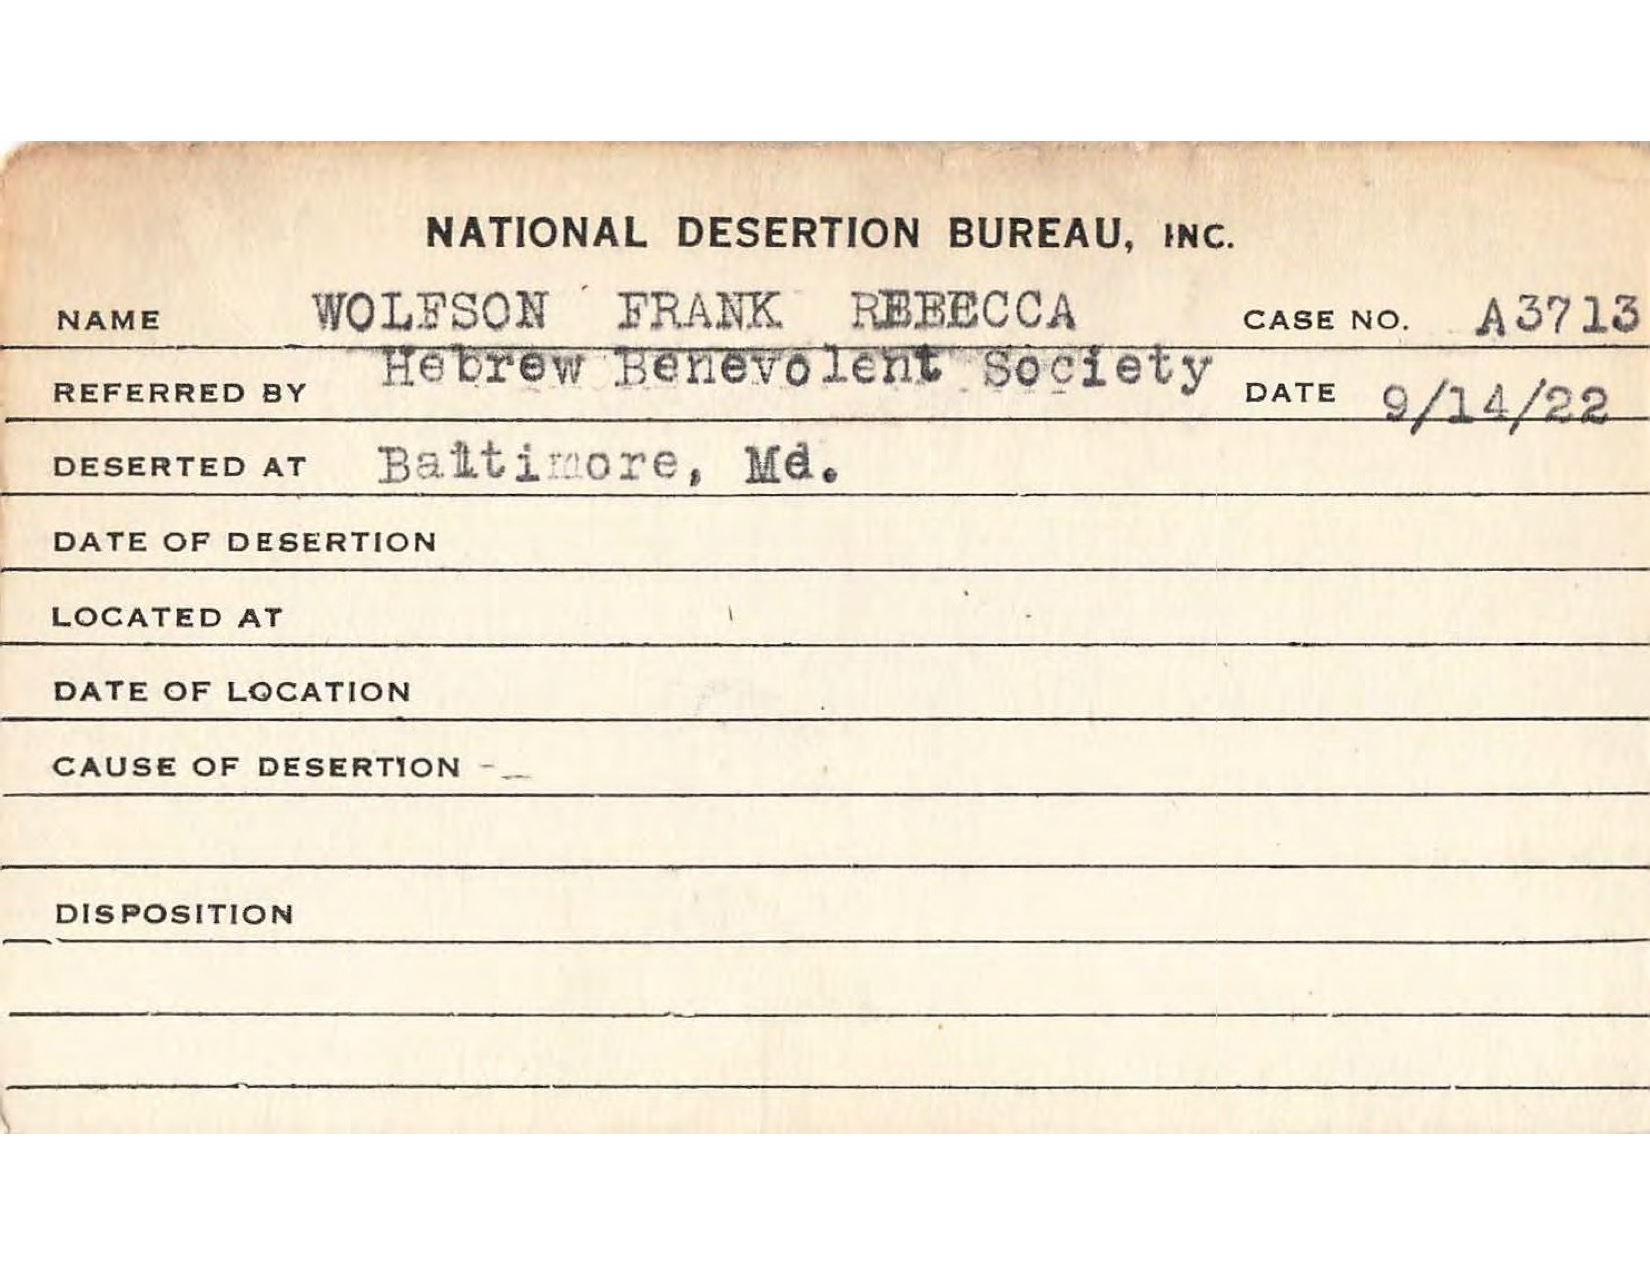 NATIONAL DESERTION BUREAU, INC.
NAME WOLFSON FRANK REBECCA CASE NO. A3713
REFERRED BY Hebrew Benevolent Society DATE 9/14/22
DESERTED AT Baltimore, Md.
DATE OF DESERTION
LOCATED AT
DATE OF LOCATION
CAUSE OF DESERTION
DISPOSITION